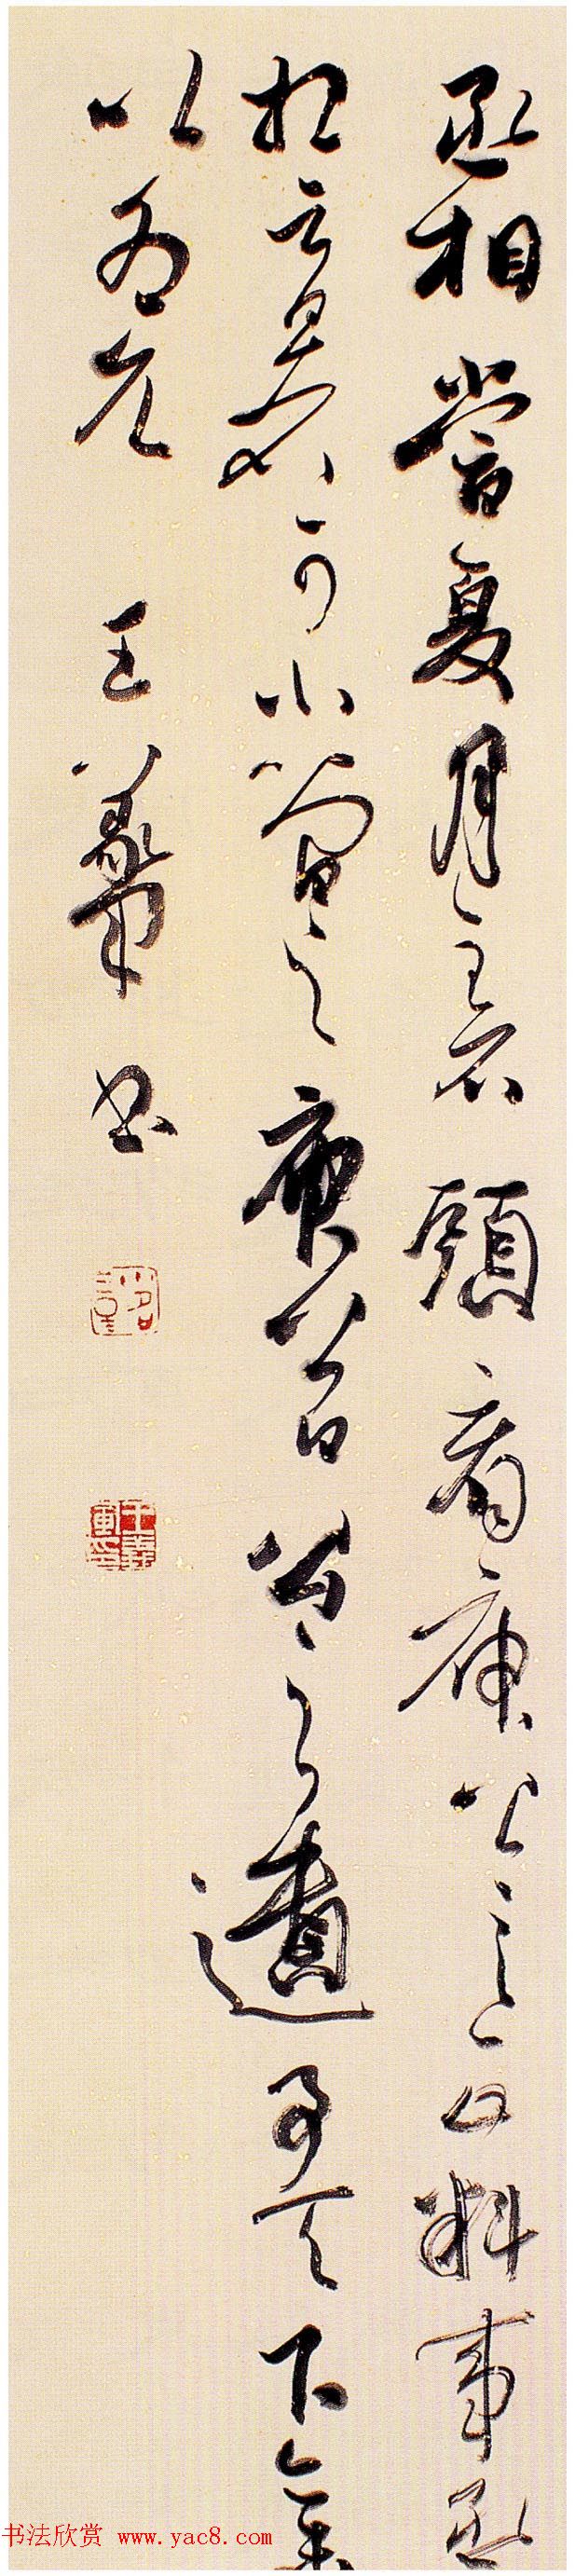 丞相尝夏月至石頭看庾公公正料事丞
相云暑可小简之庾公曰公之遺事天下亦未
以為允 王義軍書
王義軍印
书法欣赏 www.yac8.com